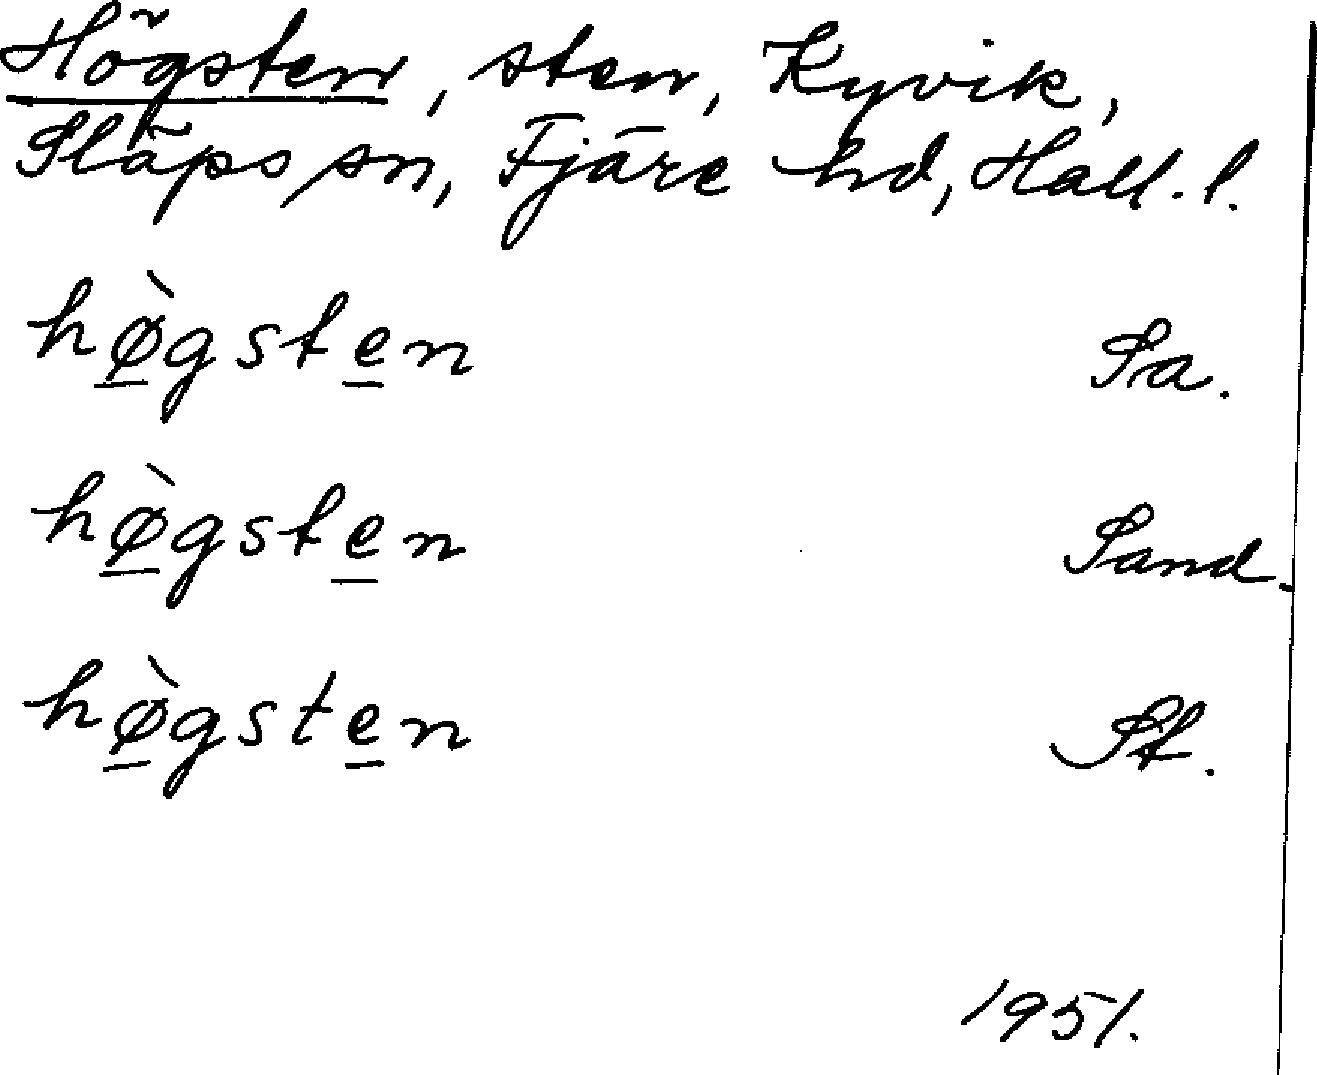 Högsten, sten, Kyvik,
Släps sn, Fjäre hd, Hall. l.
hø̀gsten Sa.
hø̀gsten Sand.
hø̀gsten St.
1951.